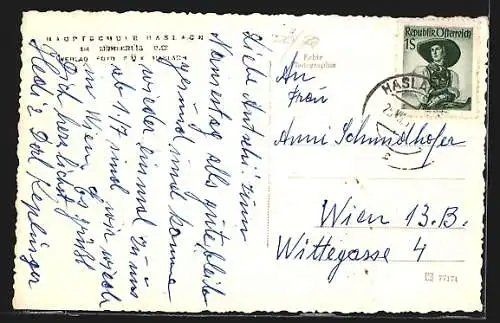 HAUPTSCHULE HASLACH
VERLAG FOTO FUX HASLACH
Liebe Antschi! Zum
Namenstag alles gute, bleib
gesund und komme
wieder einmal zu uns
ab 1.17 sind wir wieder
in Wien. Es grüßt
Dich herzlichst
Hedi & Dorl Keplinger
Echte
Photographie
Republik Österreich
1S
HASLA
An
Frau
Anni Schmidhofer
Wien 13. B.
Wittegasse 4
77171